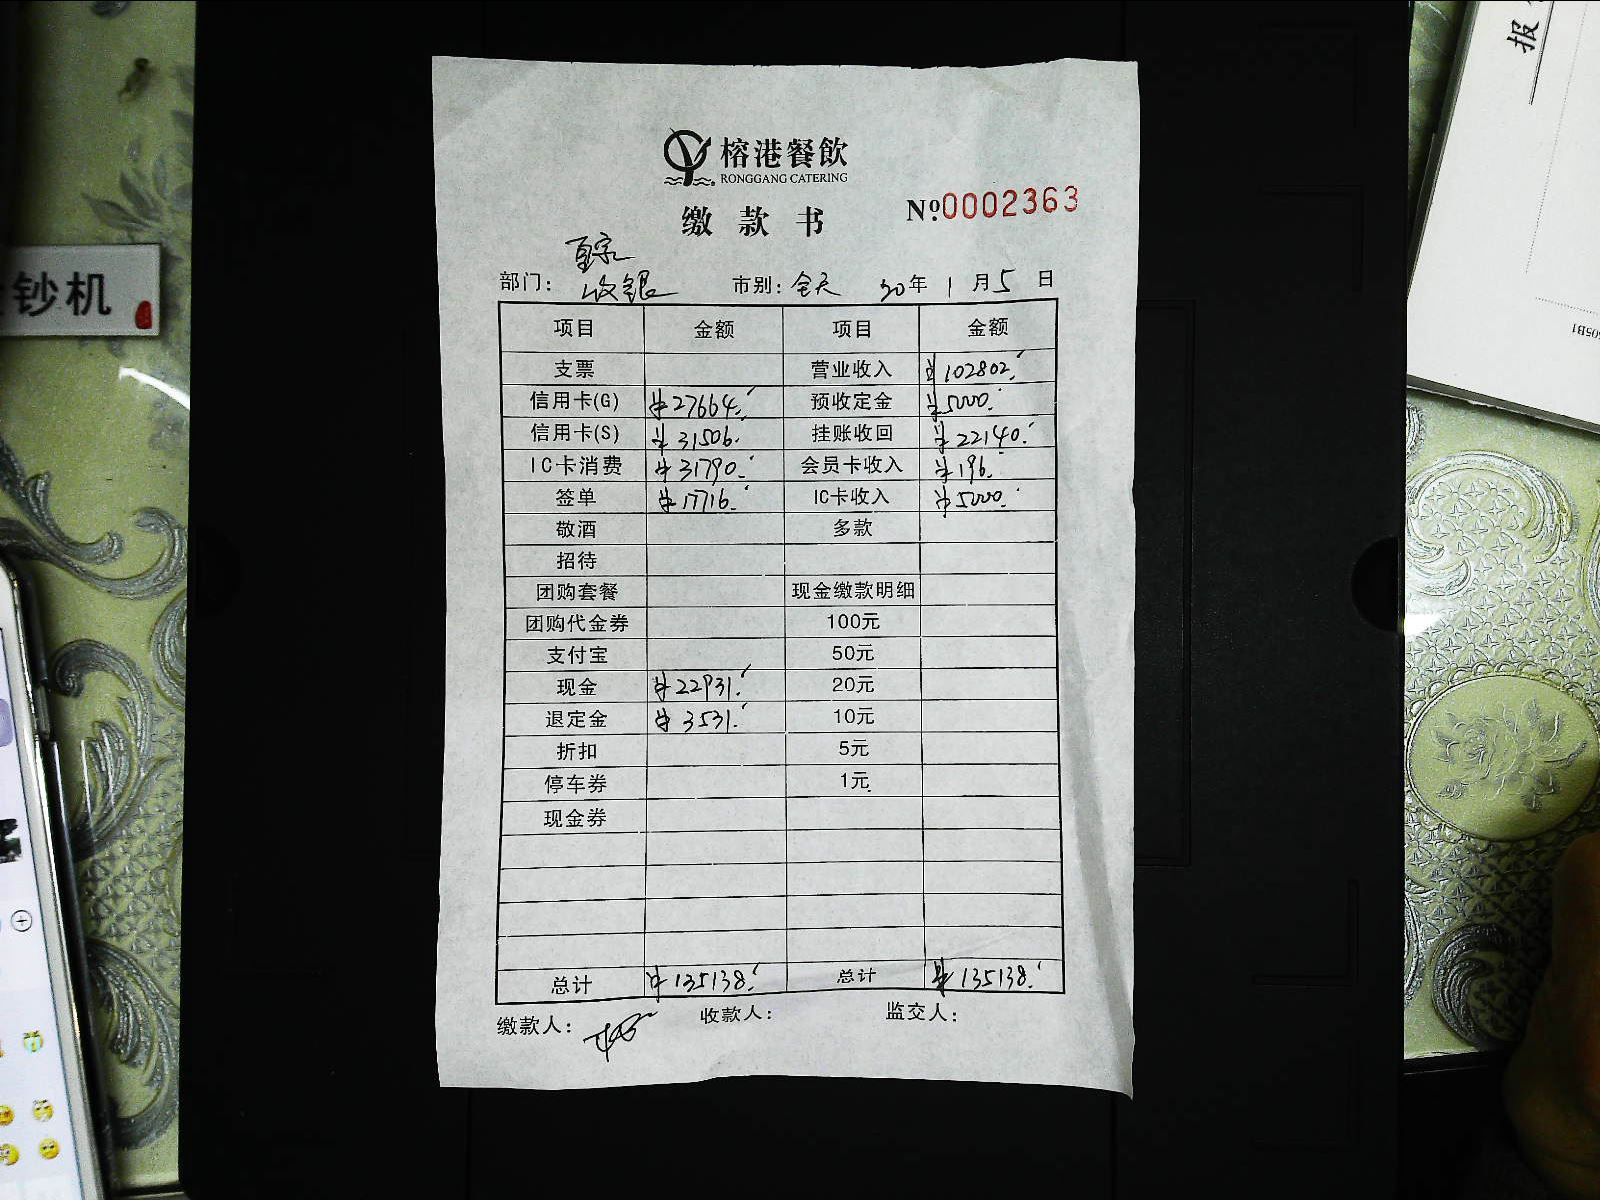 榕港餐飲
RONGGANG CATERING
缴款书 Nº.0002363
部门： 收银 市别：全天 20年 1月5日
项目 金额 项目 金额
支票 营业收入 ¥102802.
信用卡(G) ¥27664. 预收定金 ¥5000.
信用卡(S) ¥31506. 挂账收回 ¥22140.
IC卡消费 ¥31790. 会员卡收入 ¥196.
签单 ¥17716. IC卡收入 ¥5000.
敬酒 多款
招待
团购套餐 现金缴款明细
团购代金券 100元
支付宝 50元
现金 ¥22931. 20元
退定金 ¥3531. 10元
折扣 5元
停车券 1元
现金券
总计 ¥135138. 总计 ¥135138.
缴款人： 收款人： 监交人：
钞机
报